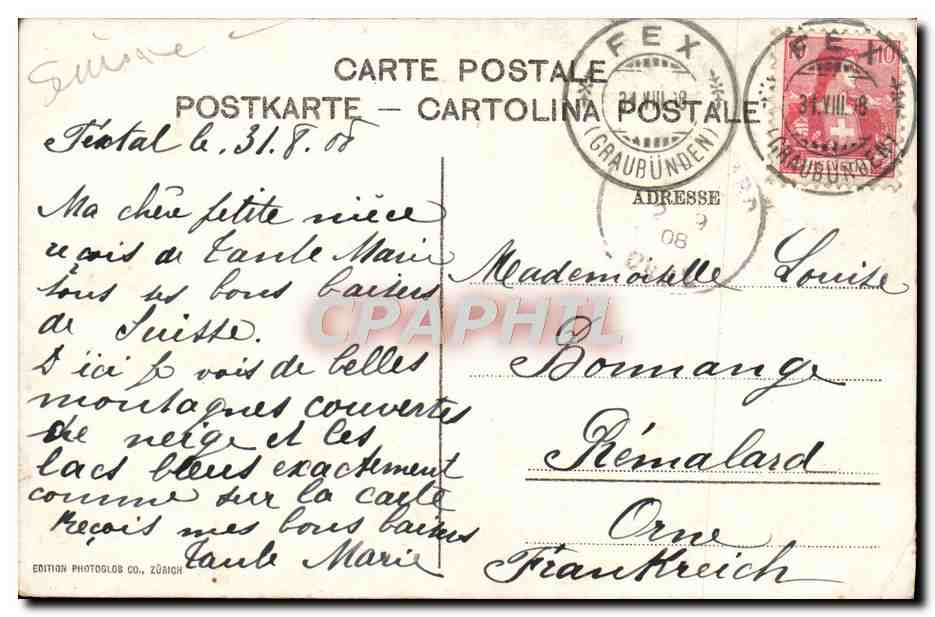 Suisse
CARTE POSTALE
POSTKARTE — CARTOLINA POSTALE
FEX
31.VIII.08
(GRAUBÜNDEN)
FEX
31.VIII.08
(GRAUBÜNDEN)
10
HELVETIA
9
08
ORNE
ADRESSE
Féxtal le. 31. 8. 08
Ma chère petite nièce
reçois de Tante Marie
tous ses bons baisers
de Suisse.
D'ici je vois de belles
montagnes couvertes
de neige et les
lacs bleus exactement
comme sur la carte
Reçois mes bons baisers
Tante Marie
Mademoiselle Louise
Bonnange
Rémalard
Orne
Frankreich
EDITION PHOTOGLOB CO., ZÜRICH
CPAPHIL